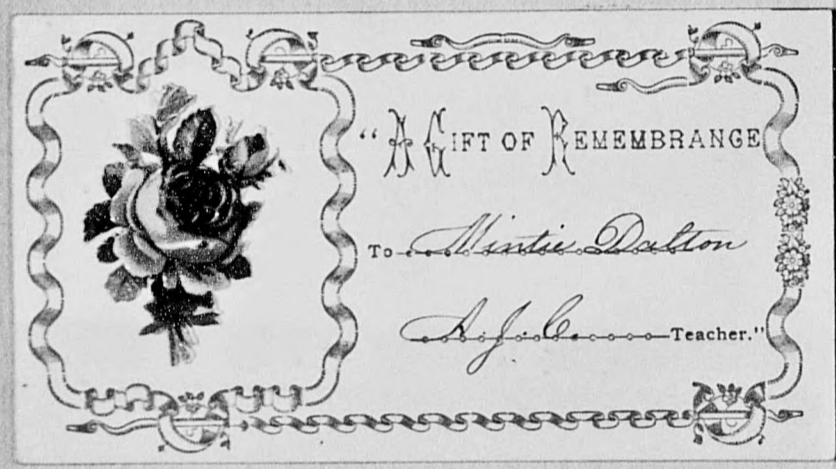 "A GIFT OF REMEMBRANCE
To Mintie Dalton
A. J. C. Teacher."